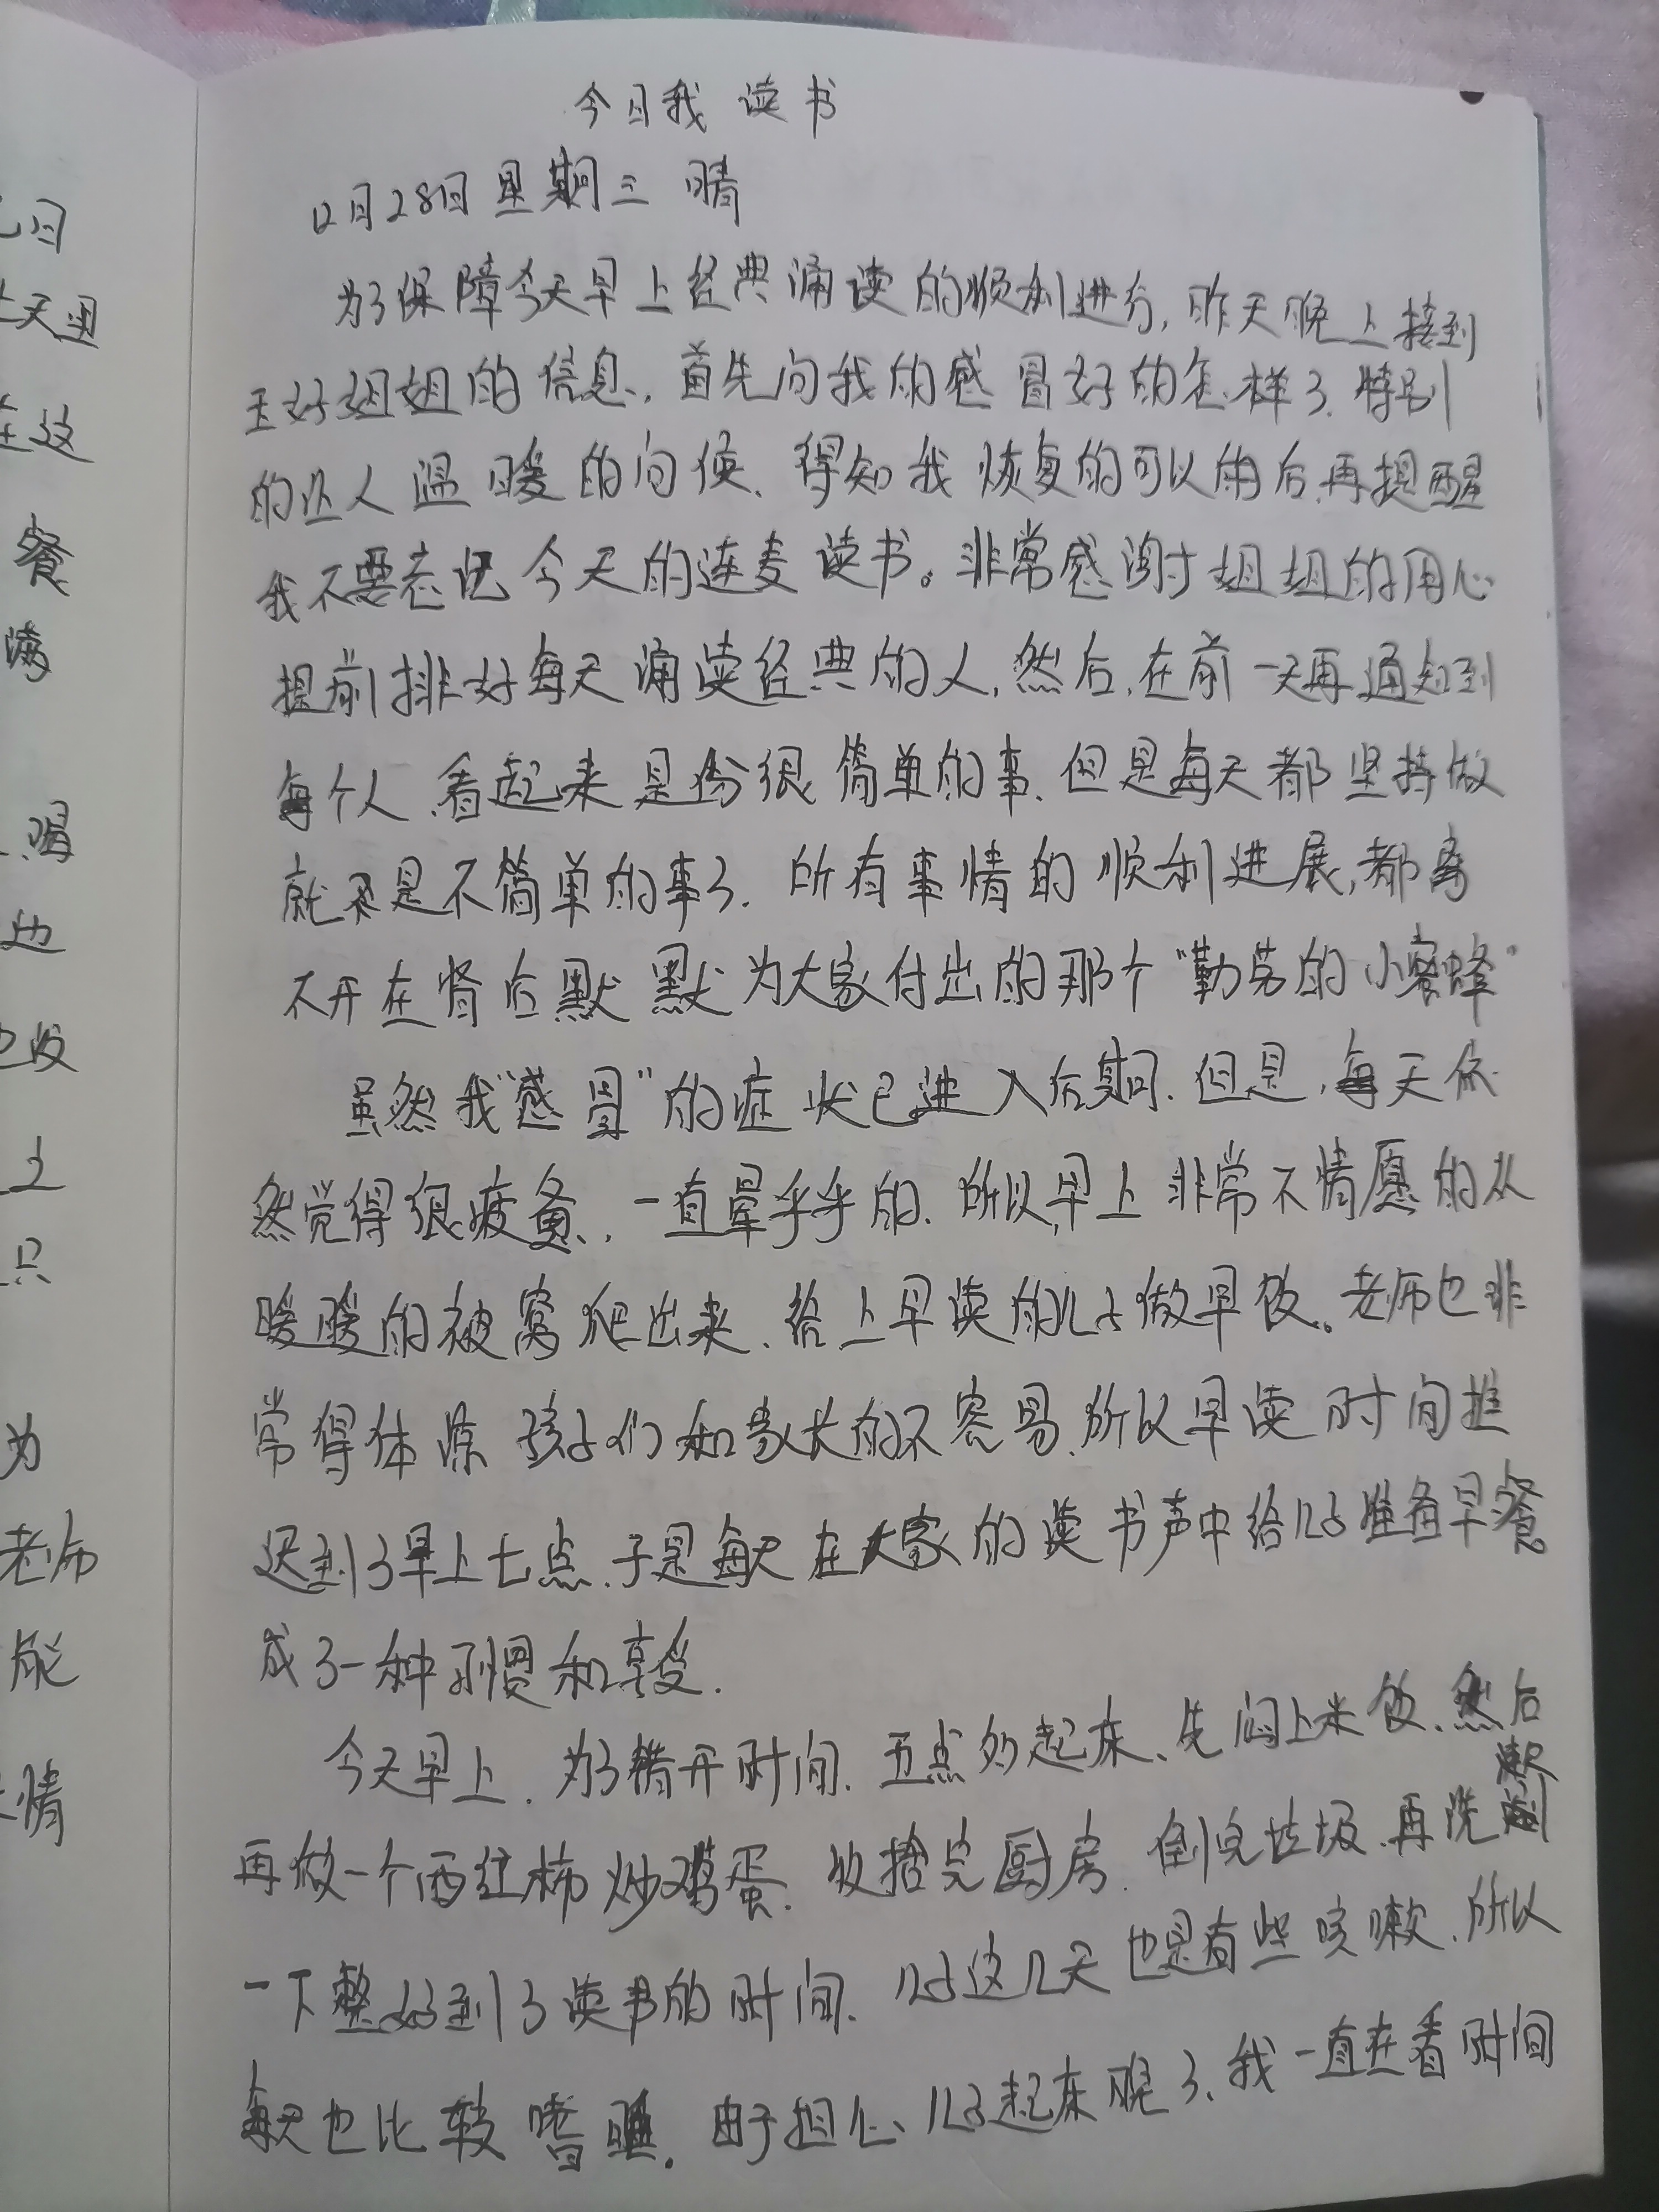 今日我读书
12月28日星期三 晴
为了保障今天早上经典诵读的顺利进行,昨天晚上接到
玉好姐姐的信息,首先问我的感冒好的怎样了.特别
的让人温暖的问候.得知我恢复的可以用后,再提醒
我不要忘记今天的连麦读书。非常感谢姐姐的用心
提前排好每天诵读经典的人,然后,在前一天再通知到
每个人.看起来是份很简单的事.但是每天都坚持做
就是不简单的事了.所有事情的顺利进展,都离
不开在背后默默为大家付出的那个“勤劳的小蜜蜂”
虽然我“感冒”的症状已进入后期.但是,每天依
然觉得很疲惫,一直晕乎乎的.所以,早上非常不情愿的从
暖暖的被窝爬出来.给上早读的儿子做早饭。老师也非
常得体谅孩子们和家长的不容易.所以早读时间推
迟到了早上七点.于是每天在大家的读书声中给儿子准备早餐
成了一种习惯和享受.
今天早上.为了错开时间.五点多起床、先闷上米饭、然后
再做一个西红柿炒鸡蛋.收拾完厨房.倒完垃圾.再洗漱
一下整好到了读书的时间.儿子这几天也是有些咳嗽.所以
每天也比较嗜睡.由于担心、儿子起床晚了、我一直在看时间
己日
天迎
在这
餐
喝
边
也没
上
只
为
老师
能
情